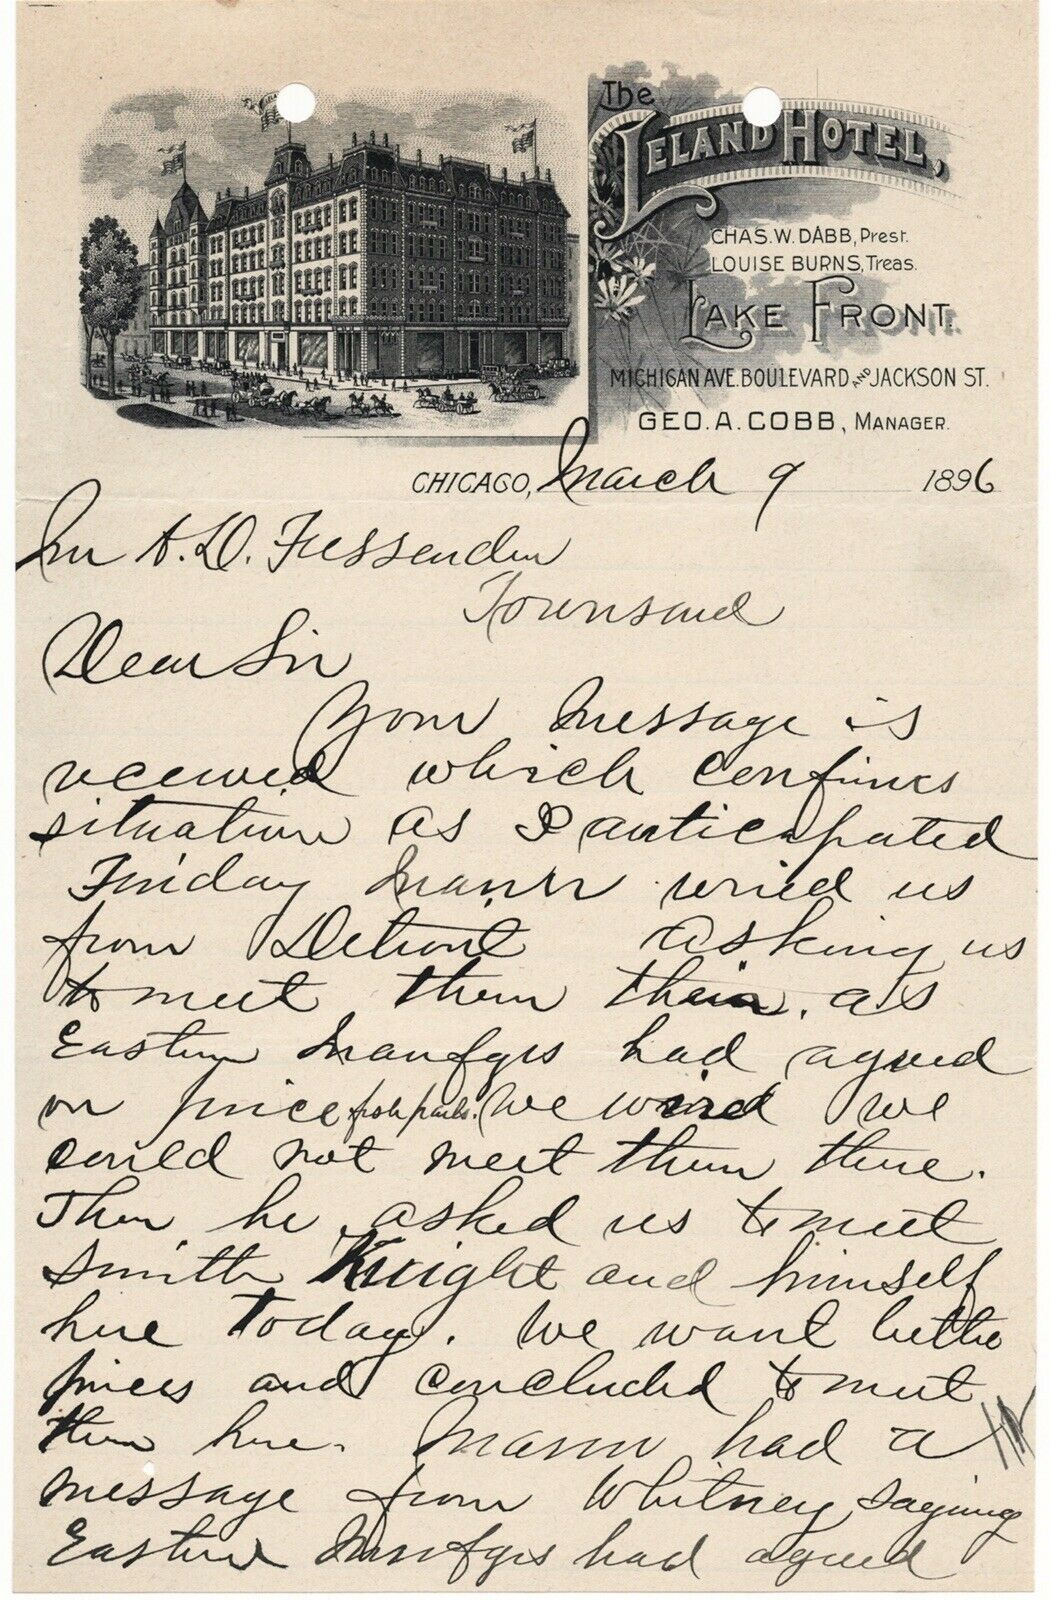 The
LELAND HOTEL,
CHAS. W. DABB, Prest.
LOUISE BURNS, Treas.
LAKE FRONT.
MICHIGAN AVE. BOULEVARD AND JACKSON ST.
GEO. A. COBB, MANAGER.
CHICAGO, March 9 1896
Mr A. D. Fessenden
Townsend
Dear Sir
Your message is
received which confirms
situation as I anticipated
Friday Mann wired us
from Detroit asking us
to meet them there. as
Eastern Manfgrs had agreed
on price pails. We wired we
could not meet them there.
Then he asked us to meet
Smith Knight and himself
here today. We want better
prices and concluded to meet
them here. Mann had a
message from Whitney saying
Eastern Manfgrs had agreed